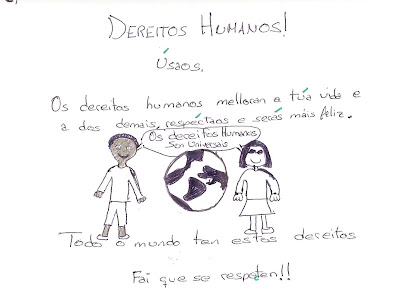 DEREITOS HUMANOS!
Úsaos.
Os dereitos humanos melloran a túa vida e
a dos demais, respéctaos e serás máis feliz.
Os dereitos Humanos
Son Universais
Todo o mundo ten estos dereitos
Fai que se respeten!!